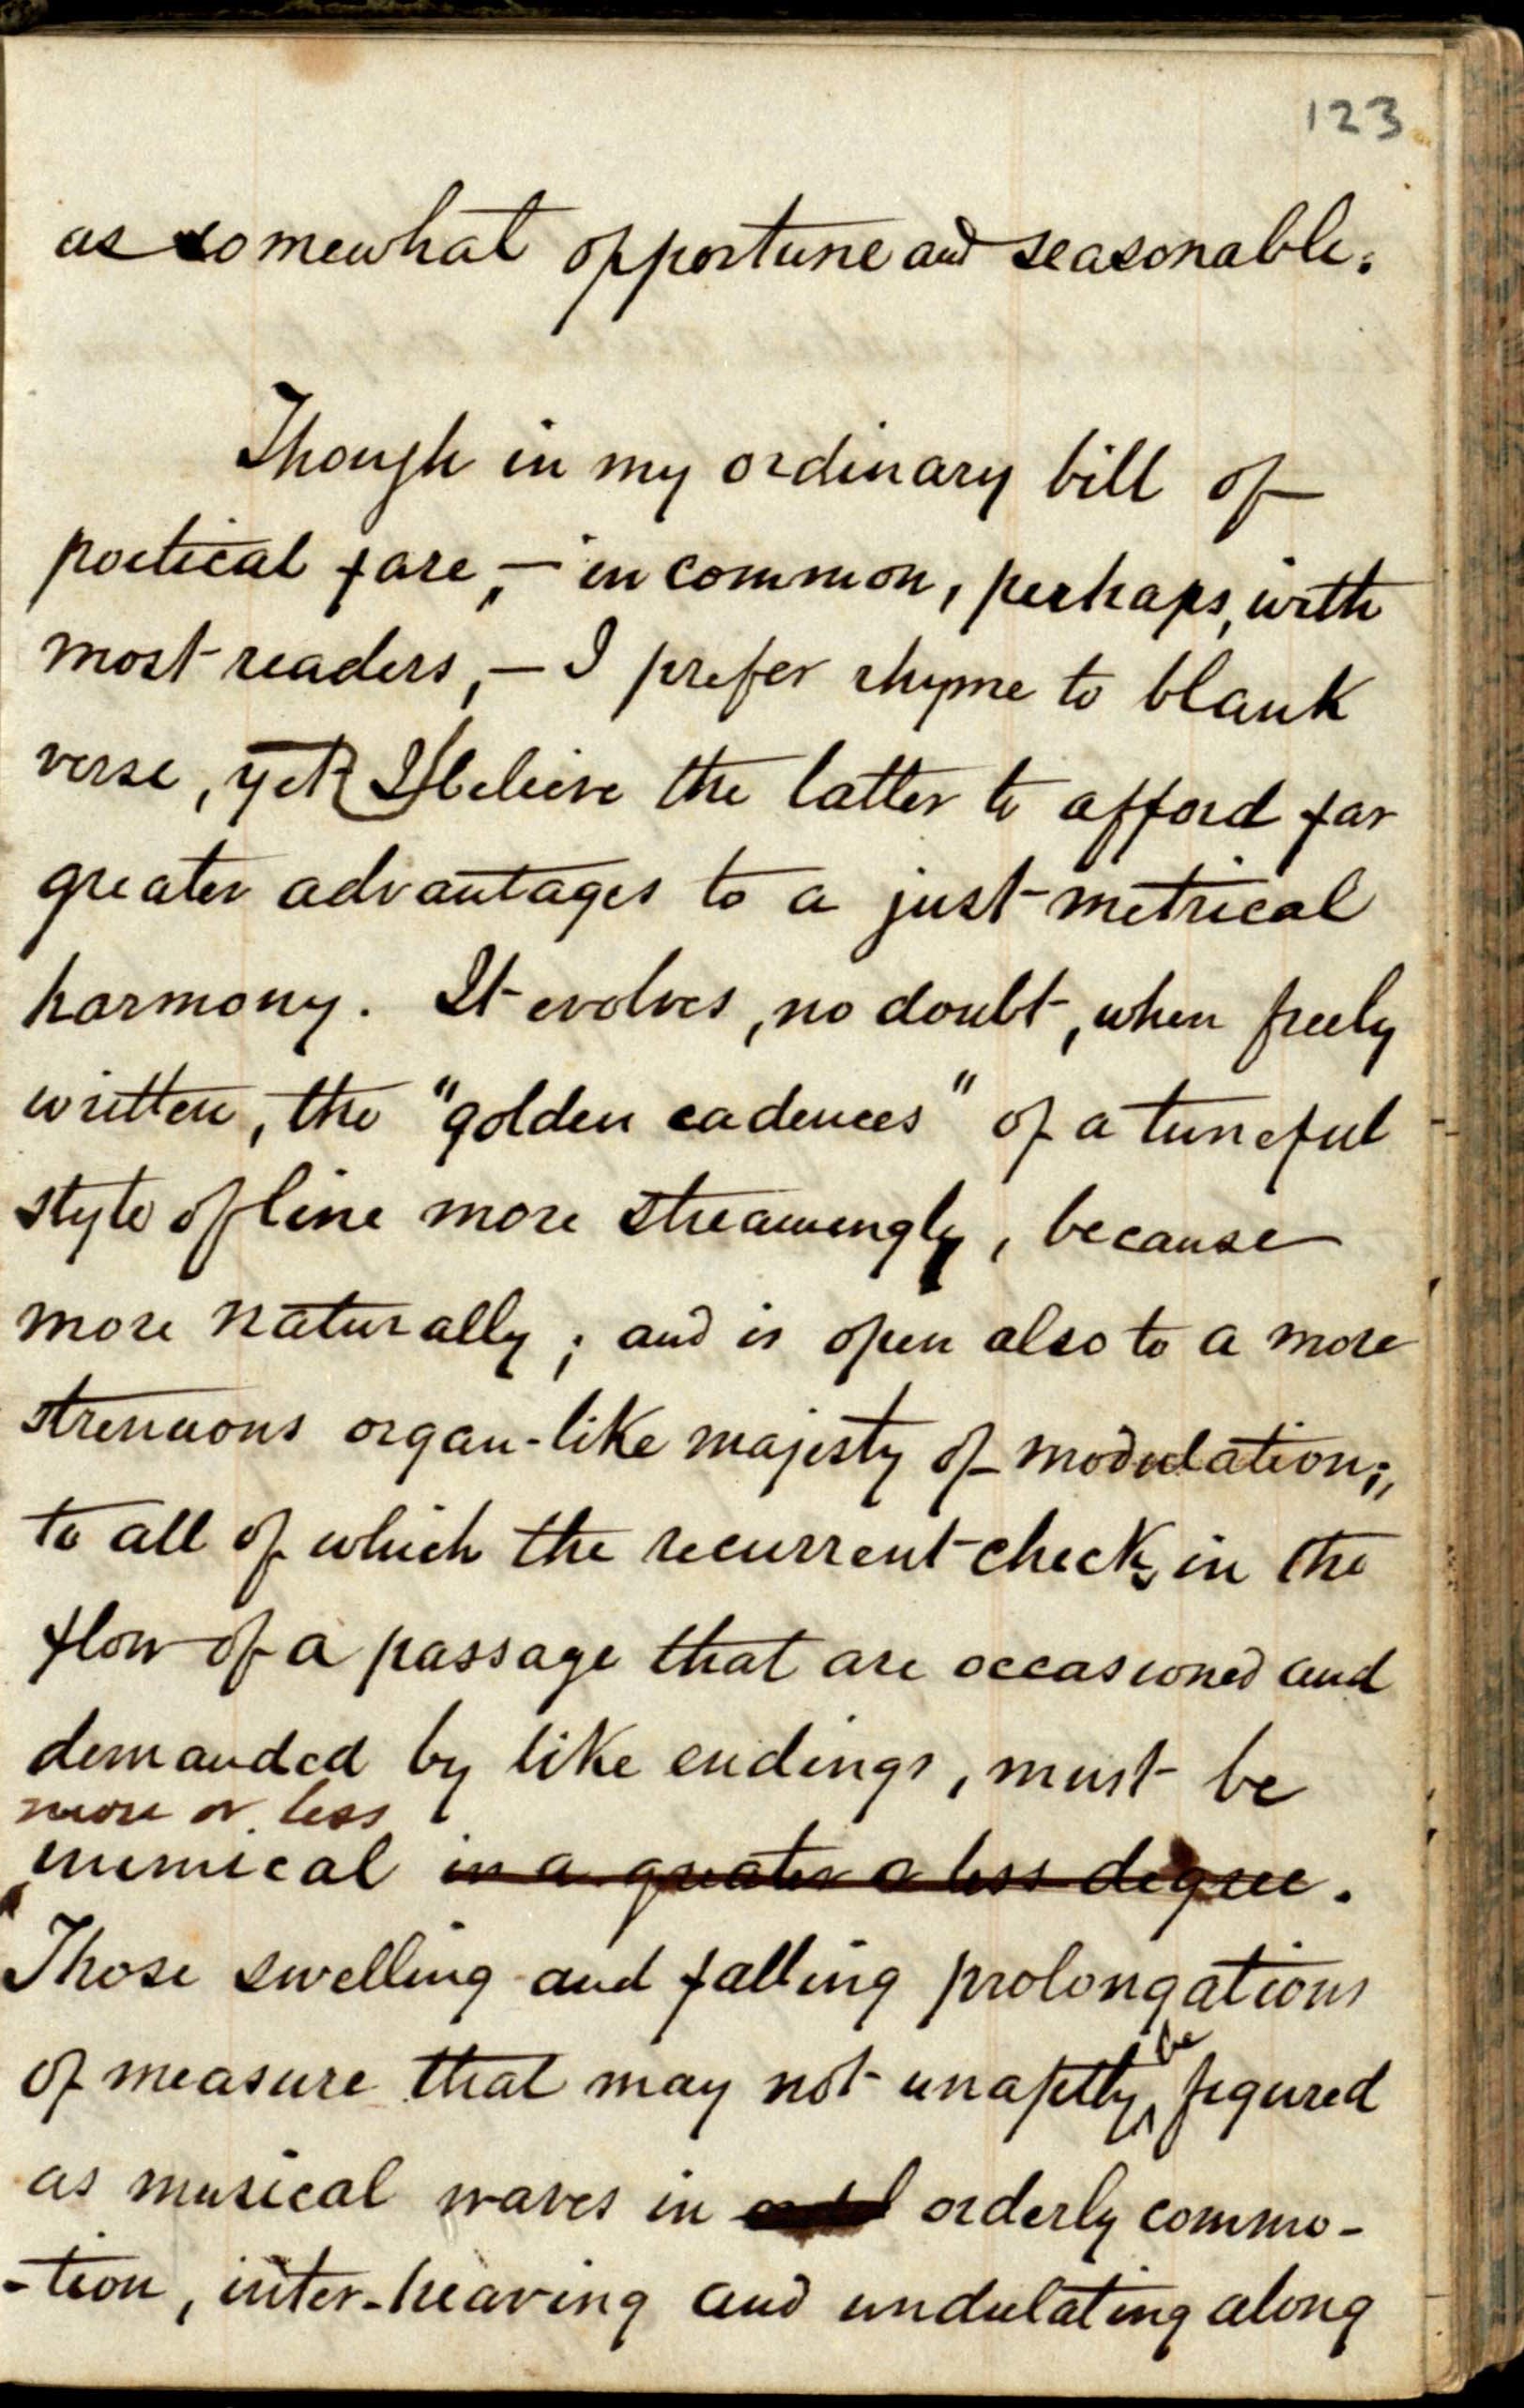 123
as somewhat opportune and seasonable.
Though in my ordinary bill of
poetical fare, — in common, perhaps, with
most readers, — I prefer rhyme to blank
verse, yet I believe the latter to afford far
greater advantages to a just metrical
harmony. It evolves, no doubt, when freely
written, the "golden cadences" of a tuneful
style of line more streamingly, because
more naturally; and is open also to a more
strenuous organ-like majesty of modulation;
to all of which the recurrent checks in the
flow of a passage that are occasioned and
demanded by like endings, must be
more or less
inimical in a greater or less degree.
Those swelling and falling prolongations
be
of measure that may not unaptly figured
as musical waves in orderly commo-
-tion, inter-heaving and undulating along